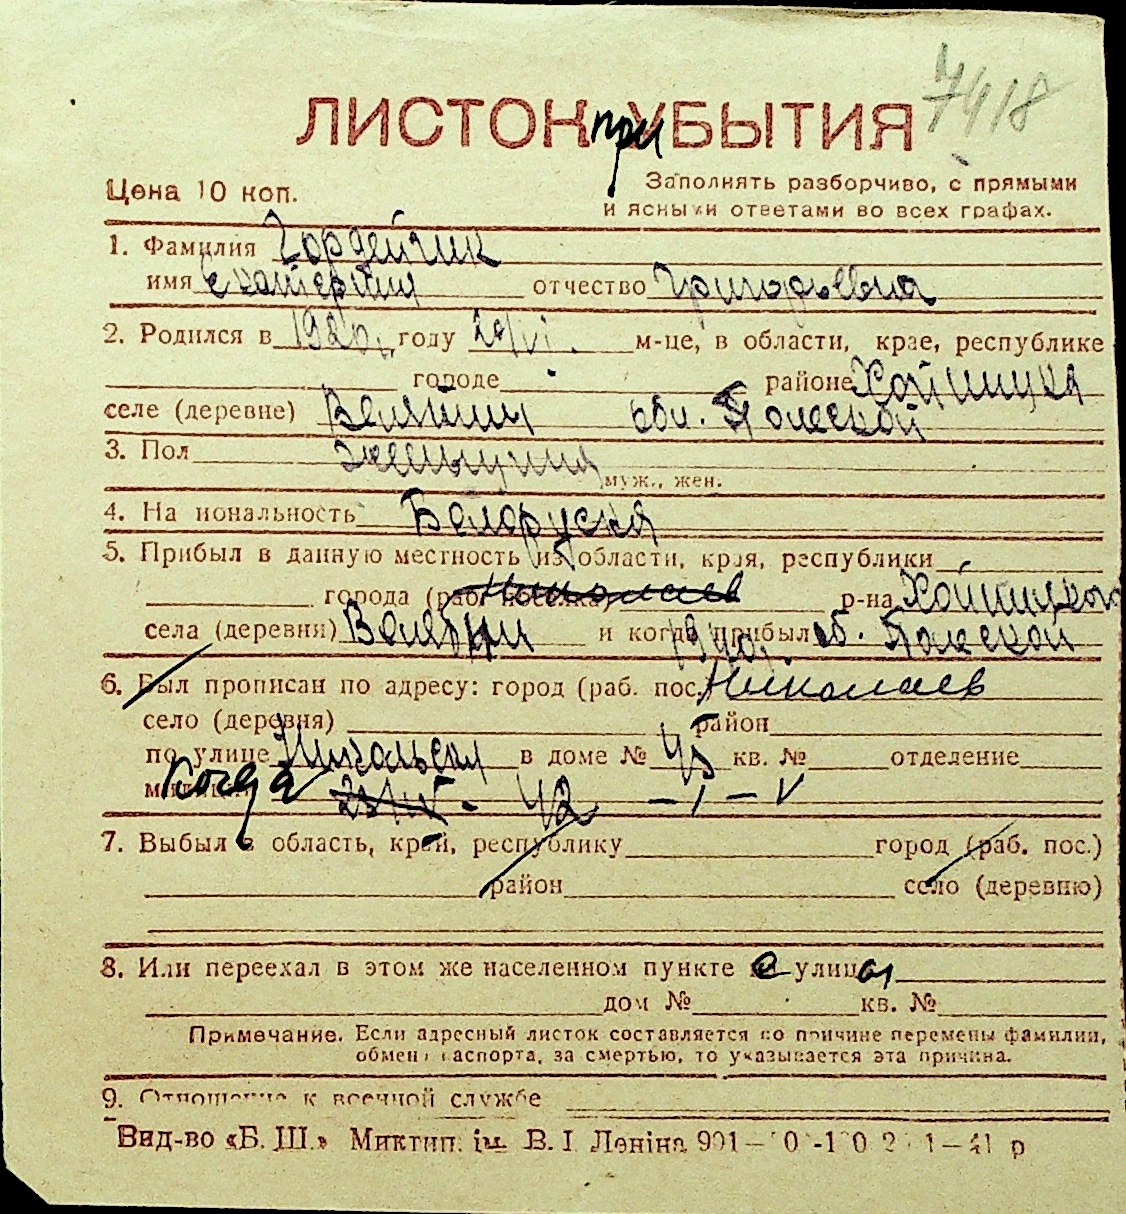 7418
ЛИСТОК при УБЫТИЯ
Цена 10 коп.
Заполнять разборчиво, с прямыми
и ясными ответами во всех графах.
1. Фамилия Гордейчик
имя Екатерина отчество Григорьевна
2. Родился в 1920г. году 20/VI. м-це, в области, крае, республике
городе районе Хойницка
селе (деревне) Велятин обл. Полеской
3. Пол женщина
муж., жен.
4. На иональность Белоруская
5. Прибыл в данную местность из области, края, республики
города (раб. поселка) Николаев р-на Хойницкого
села (деревня) и когда прибыл 1940г. об. Полеской
6. Был прописан по адресу: город (раб. пос.) Николаев
село (деревня) район
по улице Никольская в доме № 45 кв. № отделение
когда 42 – I – V
7. Выбыл в область, край, республику город (раб. пос.)
район село (деревню)
8. Или переехал в этом же населенном пункте с улицы
дом № кв. №
Примечание. Если адресный листок составляется по причине перемены фамилии,
обмена паспорта, за смертью, то указывается эта причина.
9. Отношение к военной службе
Вид-во «Б. Ш.» Миктип. ім. В. І. Леніна 991